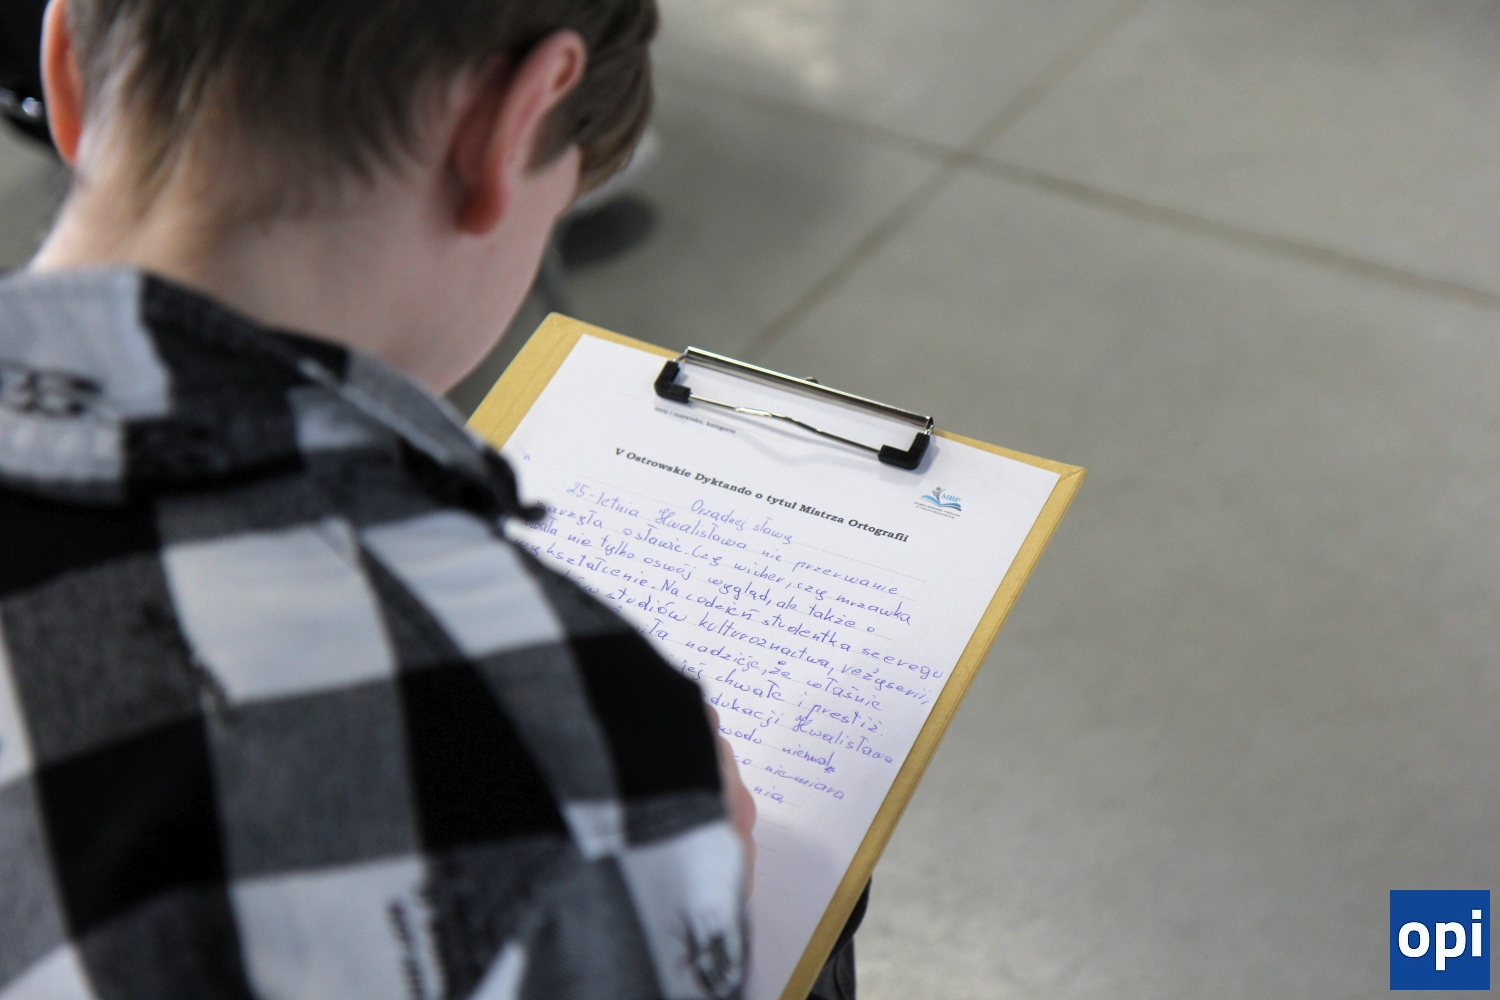 imię i nazwisko, kategoria
V Ostrowskie Dyktando o tytuł Mistrza Ortografii
MBP
Orządnej sławy
25-letnia Hwalisława nie przerwanie
marzyła osławie. Czy wicher, czy mrzawka
dbała nie tylko oswój wygląd, ale także o
wykształcenie. Na codzień studentka szeregu
studiów kulturoznactwa, reżyserii,
nadzieję, że właśnie
jej chwałę i prestiż.
edukacji Hwalisława
wodu niemal
co niemiara
nią
opi